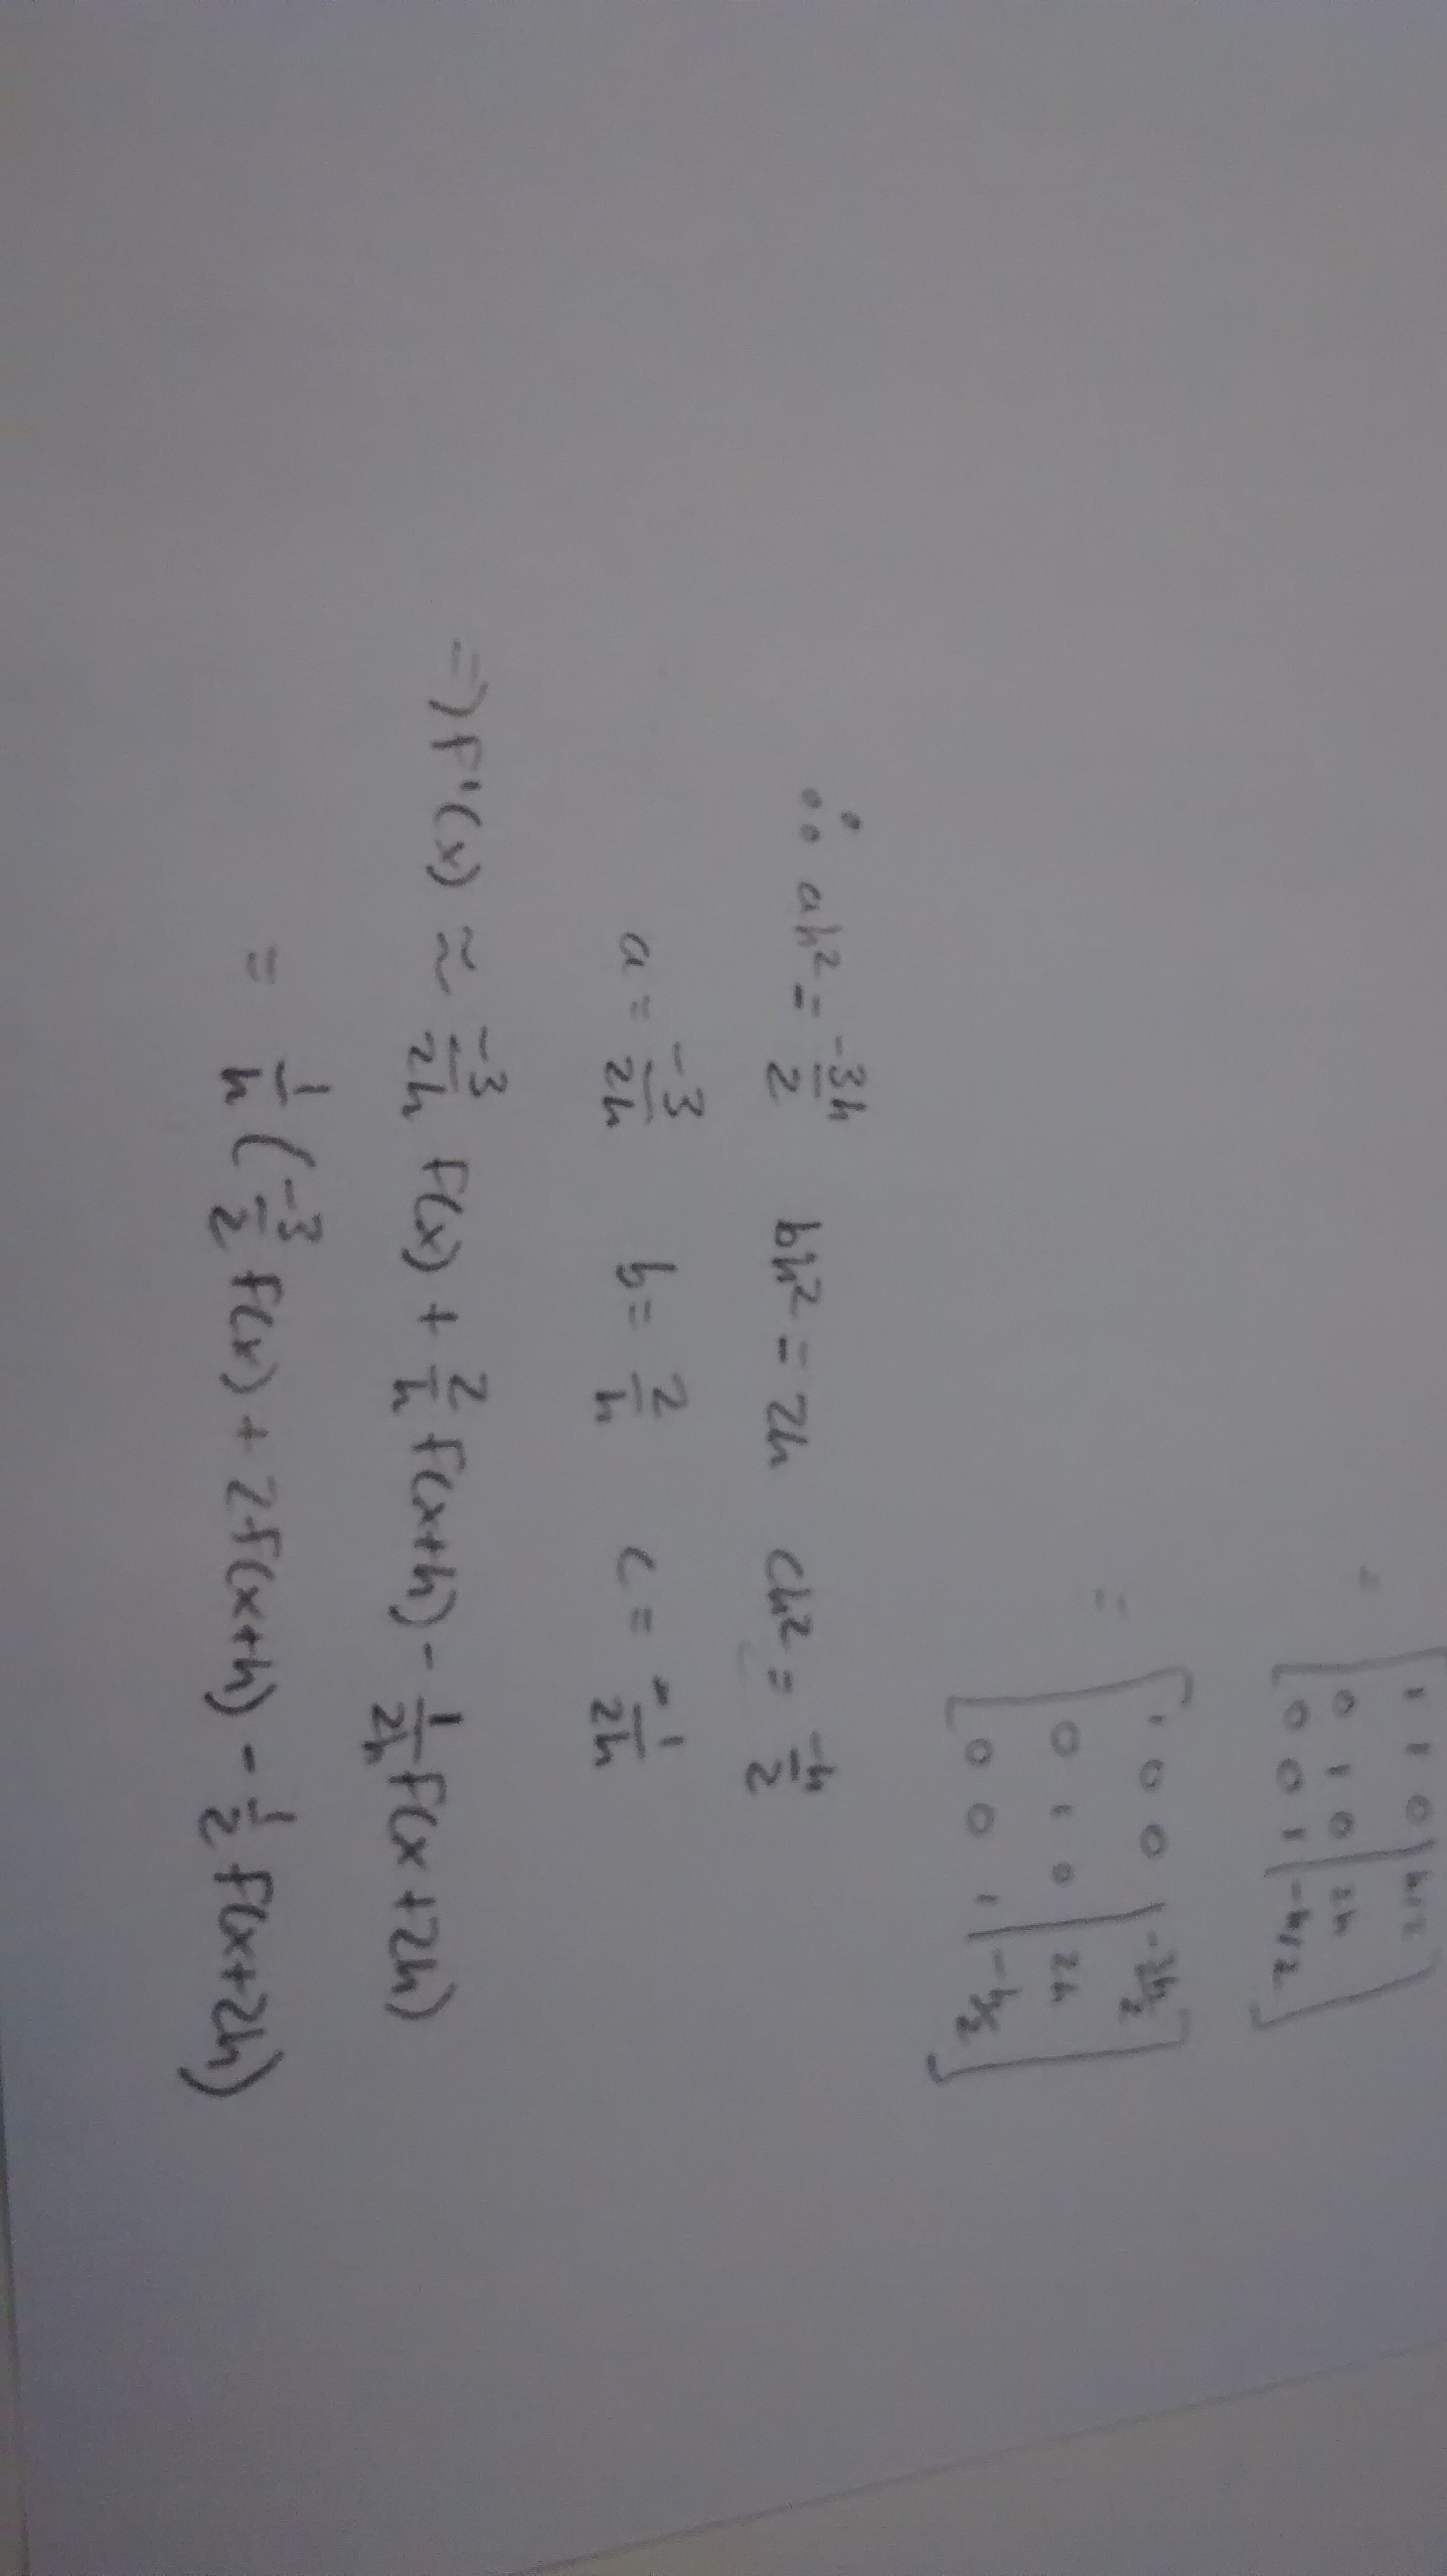 = [ 1 1 0 | h/2
0 1 0 | 2h
0 0 1 | -h/2 ]
= [ 1 0 0 | -3h/2
0 1 0 | 2h
0 0 1 | -h/2 ]
∴ ah² = -3h/2 bh² = 2h ch² = -h/2
a = -3/2h b = 2/h c = -1/2h
=> F'(x) ≈ -3/2h F(x) + 2/h F(x+h) - 1/2h F(x+2h)
= 1/h (-3/2 F(x) + 2F(x+h) - 1/2 F(x+2h))